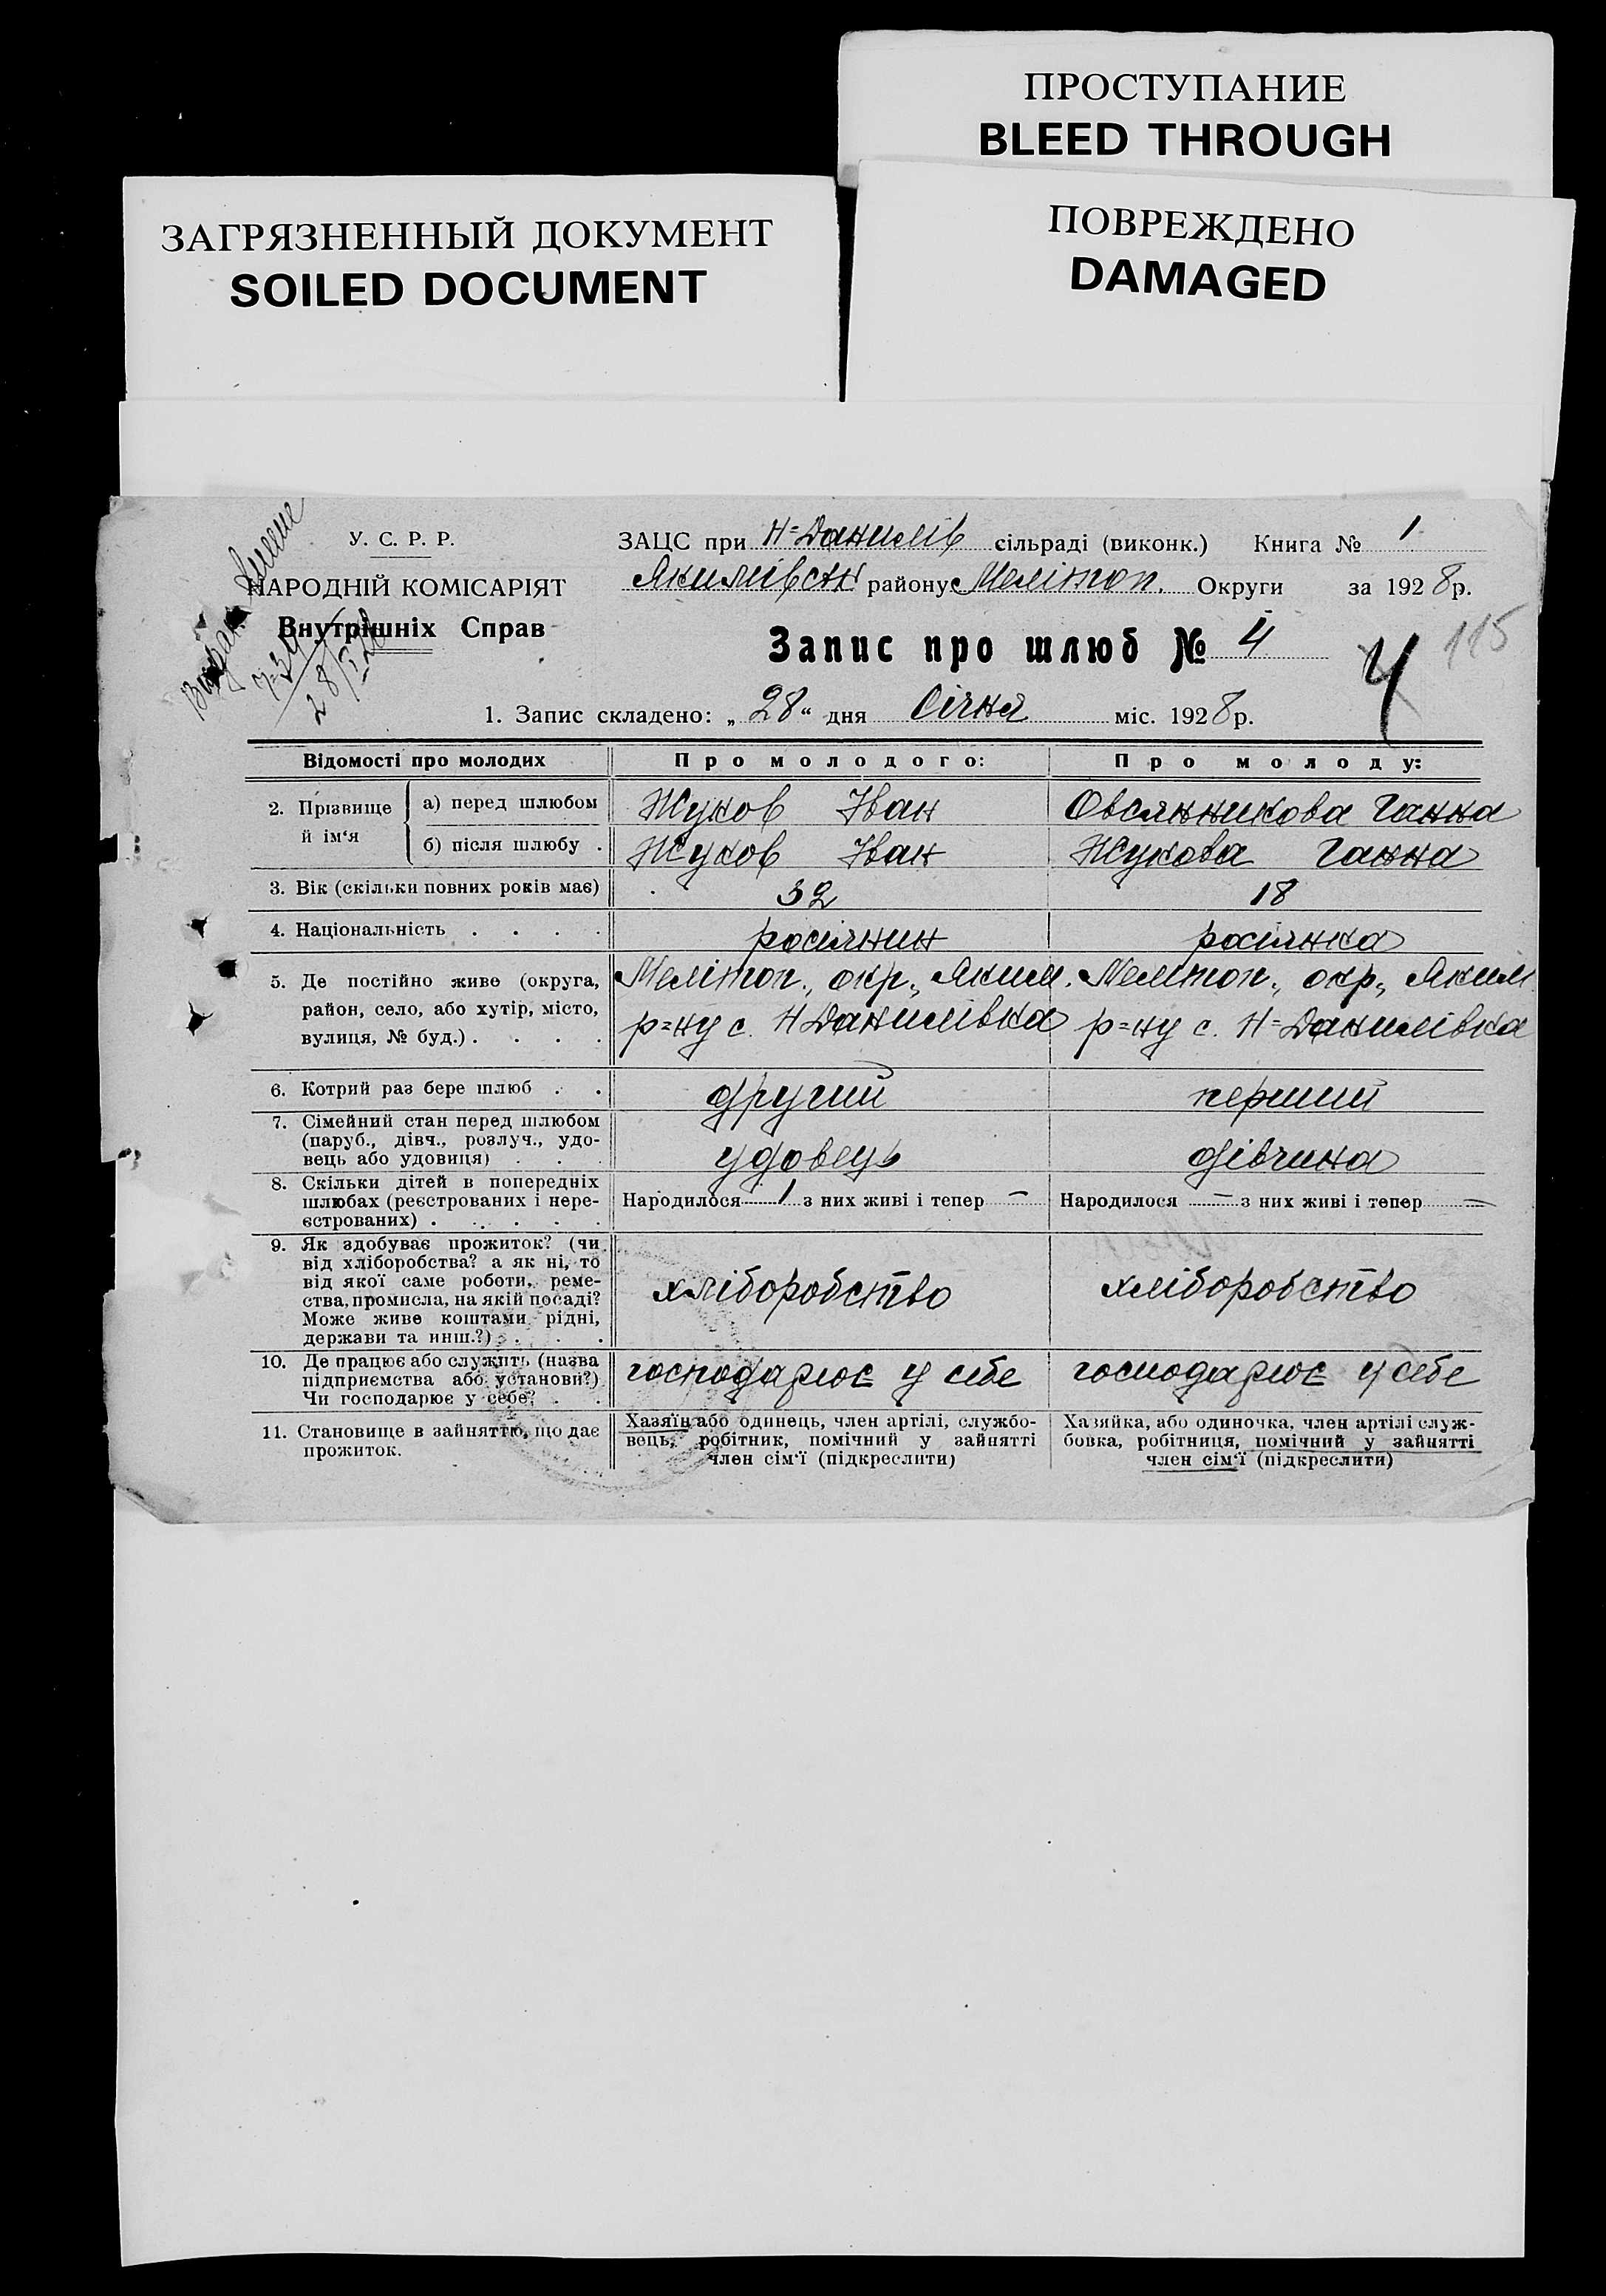 ПРОСТУПАНИЕ
BLEED THROUGH
ЗАГРЯЗНЕННЫЙ ДОКУМЕНТ
SOILED DOCUMENT
ПОВРЕЖДЕНО
DAMAGED
У. С. Р. Р.
НАРОДНІЙ КОМІСАРІЯТ
Внутрішніх Справ
ЗАЦС при Н-Данилів сільраді (виконк.) Книга № 1
Якимівськ району Мелітоп. Округи за 1928р.
Запис про шлюб № 4
4 115
1. Запис складено: „28“ дня Січня міс. 1928р.
Відомості про молодих Про молодого: Про молоду:
2. Прізвище й ім‘я а) перед шлюбом Жуков Іван Овсянникова Ганна
б) після шлюбу . Жуков Іван Жукова Ганна
3. Вік (скільки повних років має) 32 18
4. Національність . . . . росіянин росіянка
5. Де постійно живе (округа, Мелітоп., окр., Яким. Мелітоп., окр., Яким
район, село, або хутір, місто, р=ну с. Н Данилівка р=ну с. Н=Данилівка
вулиця, № буд.) . . . .
6. Котрий раз бере шлюб . . другий перший
7. Сімейний стан перед шлюбом
(паруб., дівч., розлуч., удо-
вець або удовиця) . . . удовець дівчина
8. Скільки дітей в попередніх
шлюбах (реєстрованих і нере- Народилося 1 з них живі і тепер — Народилося — з них живі і тепер —
єстрованих) . . . . .
9. Як здобуває прожиток? (чи
від хліборобства? а як ні, то
від якої саме роботи, реме-
ства, промисла, на якій посаді? хліборобство хліборобство
Може живе коштами рідні,
держави та инш.?) . . .
10. Де працює або служить (назва
підприємства або установи?) господарює у себе господарює у себе
Чи господарює у себе? . .
11. Становище в зайняттю, що дає
прожиток.
Хазяїн або одинець, член артілі, службо-
вець, робітник, помічний у зайнятті
член сім‘ї (підкреслити)
Хазяйка, або одиночка, член артілі служ-
бовка, робітниця, помічний у зайнятті
член сім‘ї (підкреслити)